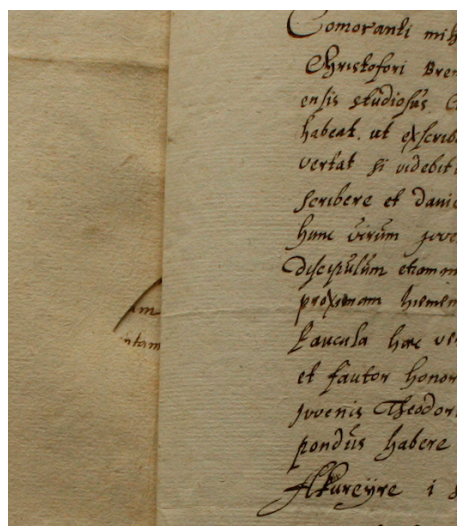 Comoranti mih
Christofori Bren
ensis studiosus. C
habeat. ut exscrib
vertat si videbit
scribere et danic
hunc virum juve
discipulum etiamn
proximam hiemem
paucula hæc ve
et fautor honor
juvenis Theodor
pondus habere
Akureyre i
am
ntam